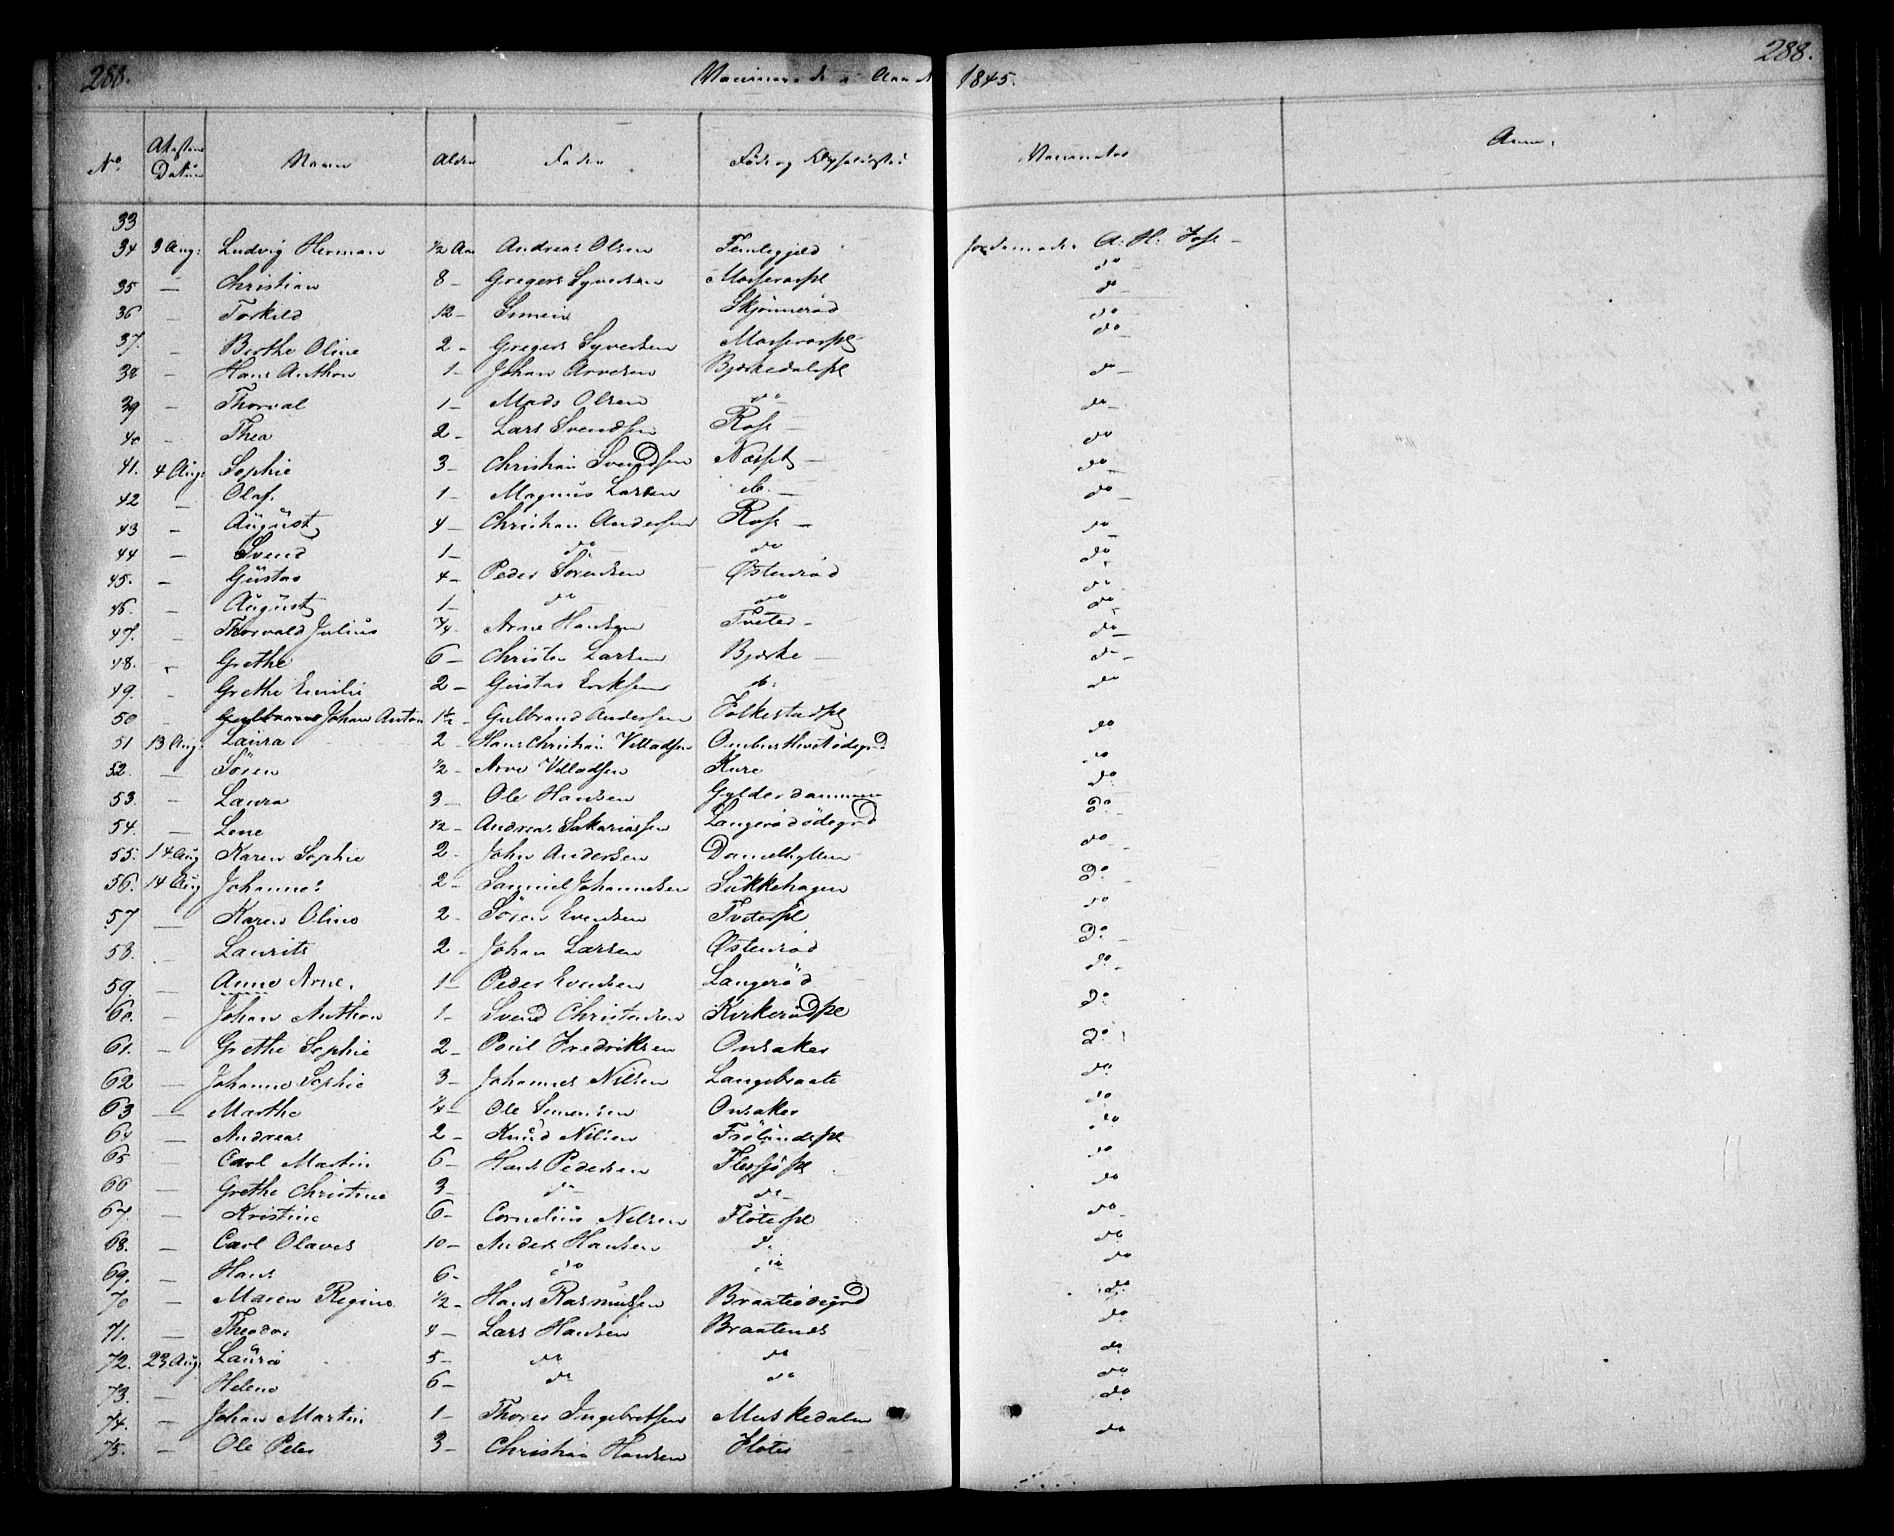 288. 1845. 288.
No Attestens Datum Navn Alder Fader Føde og Opholdssted Vaccinator Anm:
33
34 3 Aug: Ludvig Herman 1/2 Aar Andreas Olsen A. H. Foss —
35 — Christian 8 — Gregers Syversen do
36 — Torkild 12 — Simen Skjönneröd do
37. — Berthe Oline 2 — Gregers Syversen do
38 — Hans Anthon 1 — Johan Arvesen Bjerkedalspl do —
39 — Thorval 1 — Mads Olsen do do —
40 — Thea 2 — Lars Svendsen Ross — do
41. 4 Aug: Sophie 3 — Christian Svendsen Næspl — do —
42 — Olaf. 1 — Magnus Larsen do. — do —
43 — August 4 — Christian Andersen Ross — do
44 — Svend 1 — do do do
45. — Gustav 4 — Peder Sörensen Östenröd do
46. — August 1 — do do do
47. — Thorvald Julius 3/4 — Arne Hansen Tveter — do —
48. — Grethe 6 — Christen Larsen Bjerke — do —
49. — Grethe Emilie 2 — Gustav Eriksen do. do
50 — Johan Anton 1 1/2 — Gulbrand Andersen Folkestadpl do
51 13 Aug: Laura 2 — Hans Christian Villadsen do
52. — Sören 1/2 — Arve Villadsen Kure do
53. — Laura 3 — Ole Hansen Gylderdammen do
54. — Lene 1/2 — Andreas Sakariassen Langerödödegrd do
55. 14 Aug Karen Sophie 2 — John Andersen do
56. 14 Aug Johannes 2 — Samuel Johannesen Sukkehagen Do.
57 — Karen Oline 2 — Sören Evensen Tveterpl do
58. — Laurits 2 — Johan Larsen Östenröd Do. —
59. — Anne Arne. 1 — Peder Evensen Langeröd do. —
60. — Johan Anthon 1 — Svend Christensen Kirkerödpl Do
61. — Grethe Sophie 2 — Poul Fredriksen Onsaker Do
62 — Johanne Sophie 3 — Johannes Nilsen Langebraate do
63 — Marthe 1/4 — Ole Simensen Onsaker do
64 — Andreas 2 — Knud Nilsen Frölandspl do
65 — Carl Martin 6 — Hans Pedersen Flesjöpl do
66 — Grethe Christine 3 — do do — do
67. — Kristine 6 — Cornelius Nilsen Flöterpl do
68. — Carl Olaves 10 — Anders Hansen do do
69. — Hans 6 — do do do
70 — Maren Regine 1/2 — Hans Rasmussen Braateödegrd do
71. — Theodor 4 — Lars Hansen Braatenes do
72. 23 Aug: Laura 5 — do do do
73. — Helene 6 — do do do
74. — Johan Martin 1 — Thores Ingebretsen Muskedalen do
75. — Ole Peter 3 — Christian Hansen Floter do